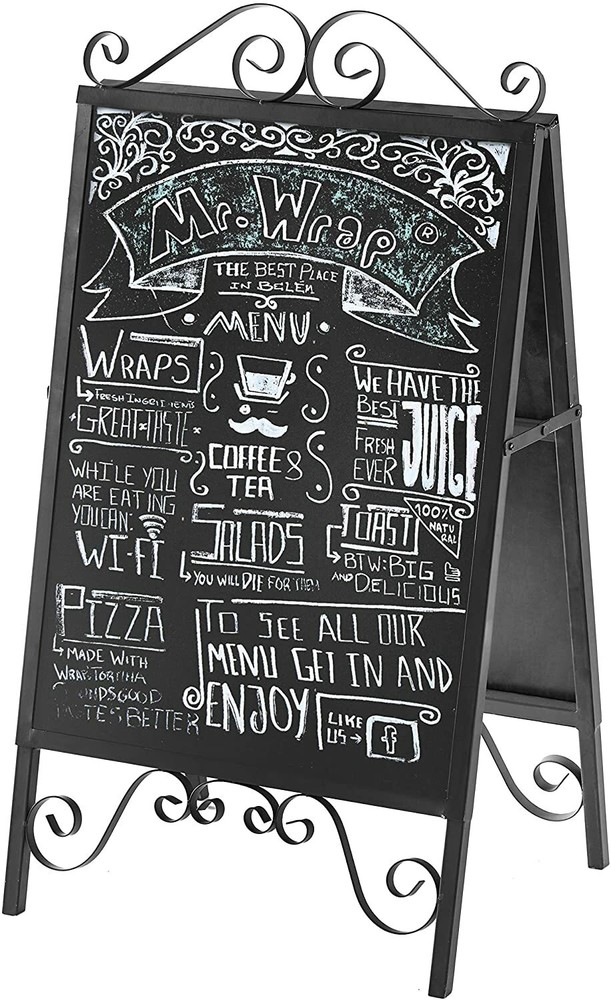 Mr. Wrap ®
THE BEST PLACE
IN BELÉN
MENU
WRAPS
FRESH INGREDIENTS
GREAT TASTE
WHILE YOU
ARE EATING
YOU CAN:
WI-FI
PIZZA
MADE WITH
WRAP TORTILLA
SOUNDS GOOD
TASTES BETTER
COFFEE &
TEA
SALADS
YOU WILL DIE FOR THEM
WE HAVE THE
BEST
JUICE
FRESH
EVER
TOAST
100%
NATU
RAL
BTW: BIG
AND DELICIOUS
TO SEE ALL OUR
MENU GET IN AND
ENJOY
LIKE
US → f